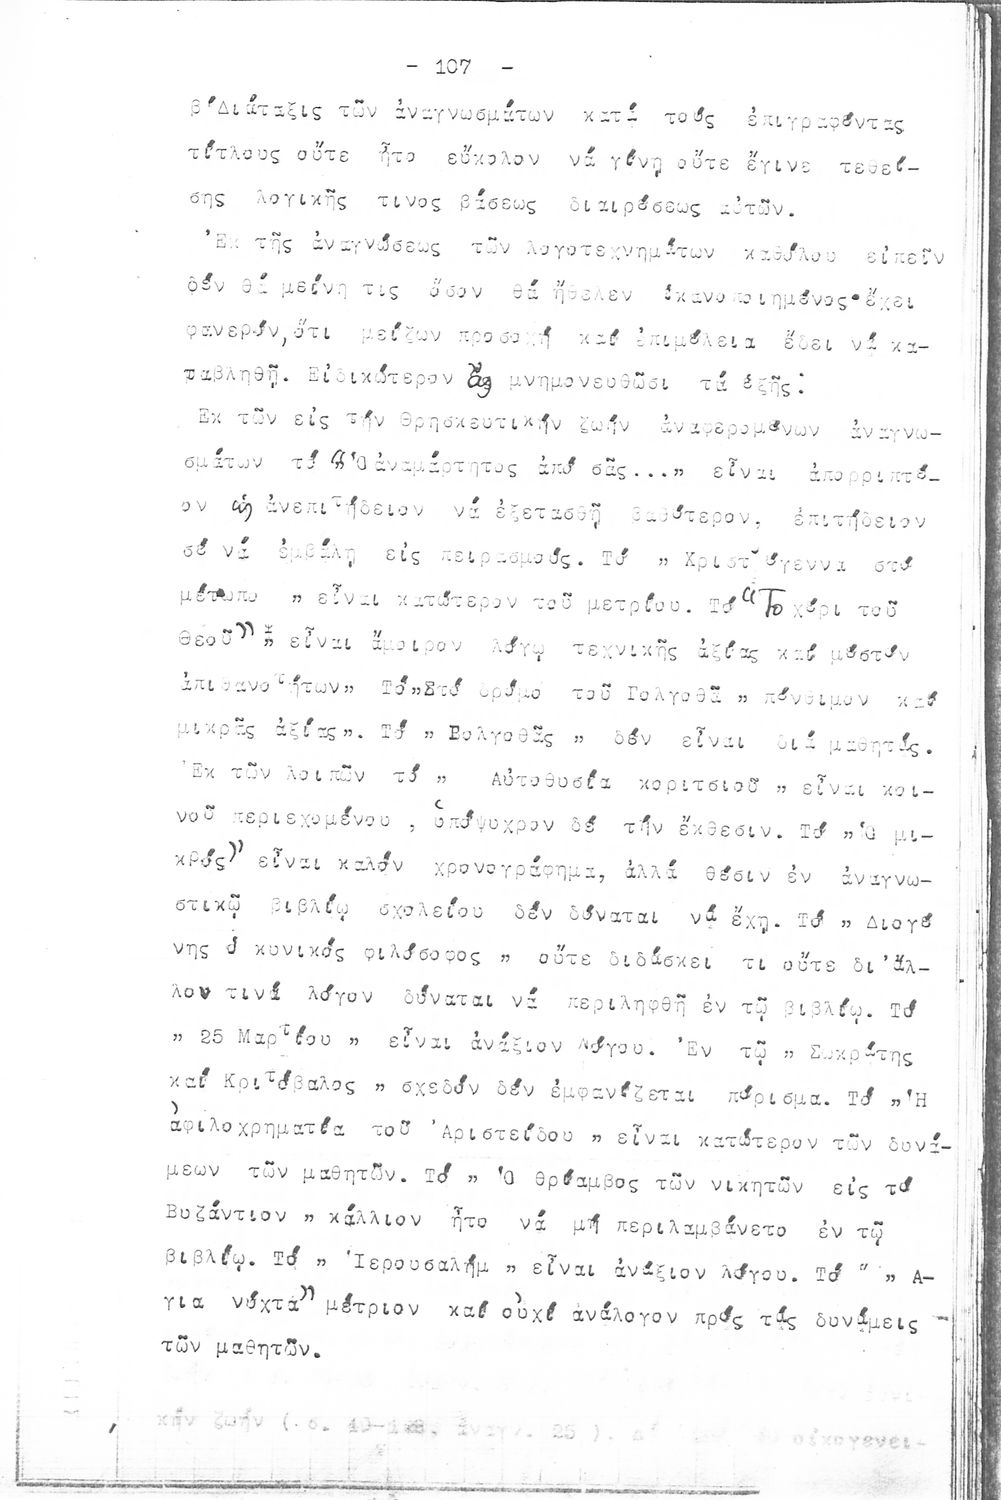 - 107 -
β΄Διάταξις τῶν ἀναγνωσμάτων κατά τούς ἐπιγραφέντας
τίτλους οὔτε ἦτο εὔκολον νά γίνῃ οὔτε ἔγινε τεθεί-
σης λογικῆς τινος βάσεως διαιρέσεως αὐτῶν.
Ἐκ τῆς ἀναγνώσεως τῶν λογοτεχνημάτων καθόλου εἰπεῖν
δέν θά μείνῃ τις ὅσον θά ἤθελεν ἱκανοποιημένος·ἔχει
φανερόν,ὅτι μείζων προσοχή καί ἐπιμέλεια ἔδει νά κα-
ταβληθῇ. Εἰδικώτερον ἄς μνημονευθῶσι τά ἑξῆς:
Ἐκ τῶν εἰς τήν Θρησκευτικήν ζωήν ἀναφερομένων ἀναγνω-
σμάτων τό "Ὁ ἀναμάρτητος ἀπό σᾶς..." εἶναι ἀπορριπτέ-
ον ὡς ἀνεπιτήδειον νά ἐξετασθῇ βαθύτερον, ἐπιτήδειον
δέ νά ἐμβάλῃ εἰς πειρασμούς. Τό " Χριστούγεννα στό
μέτωπο " εἶναι κατώτερον τοῦ μετρίου. Τό "Το χέρι τοῦ
Θεοῦ" εἶναι ἄμοιρον λόγῳ τεχνικῆς ἀξίας καί μεστόν
ἀπιθανοτήτων" Τό"Στό δρόμο τοῦ Γολγοθᾶ " πένθιμον καί
μικρᾶς ἀξίας". Τό " Βολγοθᾶς " δέν εἶναι διά μαθητάς.
Ἐκ τῶν λοιπῶν τό " Αὐτοθυσία κοριτσιοῦ " εἶναι κοι-
νοῦ περιεχομένου , ὑπόψυχρον δέ τήν ἔκθεσιν. Τό "Ὁ μι-
κρός" εἶναι καλόν χρονογράφημα, ἀλλά θέσιν ἐν ἀναγνω-
στικῷ βιβλίῳ σχολείου δέν δύναται νά ἔχῃ. Τό " Διογέ
νης ὁ κυνικός φιλόσοφος " οὔτε διδάσκει τι οὔτε δι'ἄλ-
λον τινά λόγον δύναται νά περιληφθῇ ἐν τῷ βιβλίῳ. Τό
" 25 Μαρτίου " εἶναι ἀνάξιον λόγου. Ἐν τῷ " Σωκράτης
καί Κριτόβαλος " σχεδόν δέν ἐμφανίζεται πόρισμα. Τό "Ἡ
ἀφιλοχρηματία τοῦ Ἀριστείδου " εἶναι κατώτερον τῶν δυνά-
μεων τῶν μαθητῶν. Τό " Ὁ θρίαμβος τῶν νικητῶν εἰς τό
Βυζάντιον " κάλλιον ἦτο νά μή περιλαμβάνετο ἐν τῷ
βιβλίῳ. Τό " Ἱερουσαλήμ " εἶναι ἀνάξιον λόγου. Τό " " Α-
για νύχτα" μέτριον καί οὐχί ἀνάλογον πρός τάς δυνάμεις -
τῶν μαθητῶν.
κήν ζωήν ( σ. ἀναγν. 25 ). οἰκογενει-